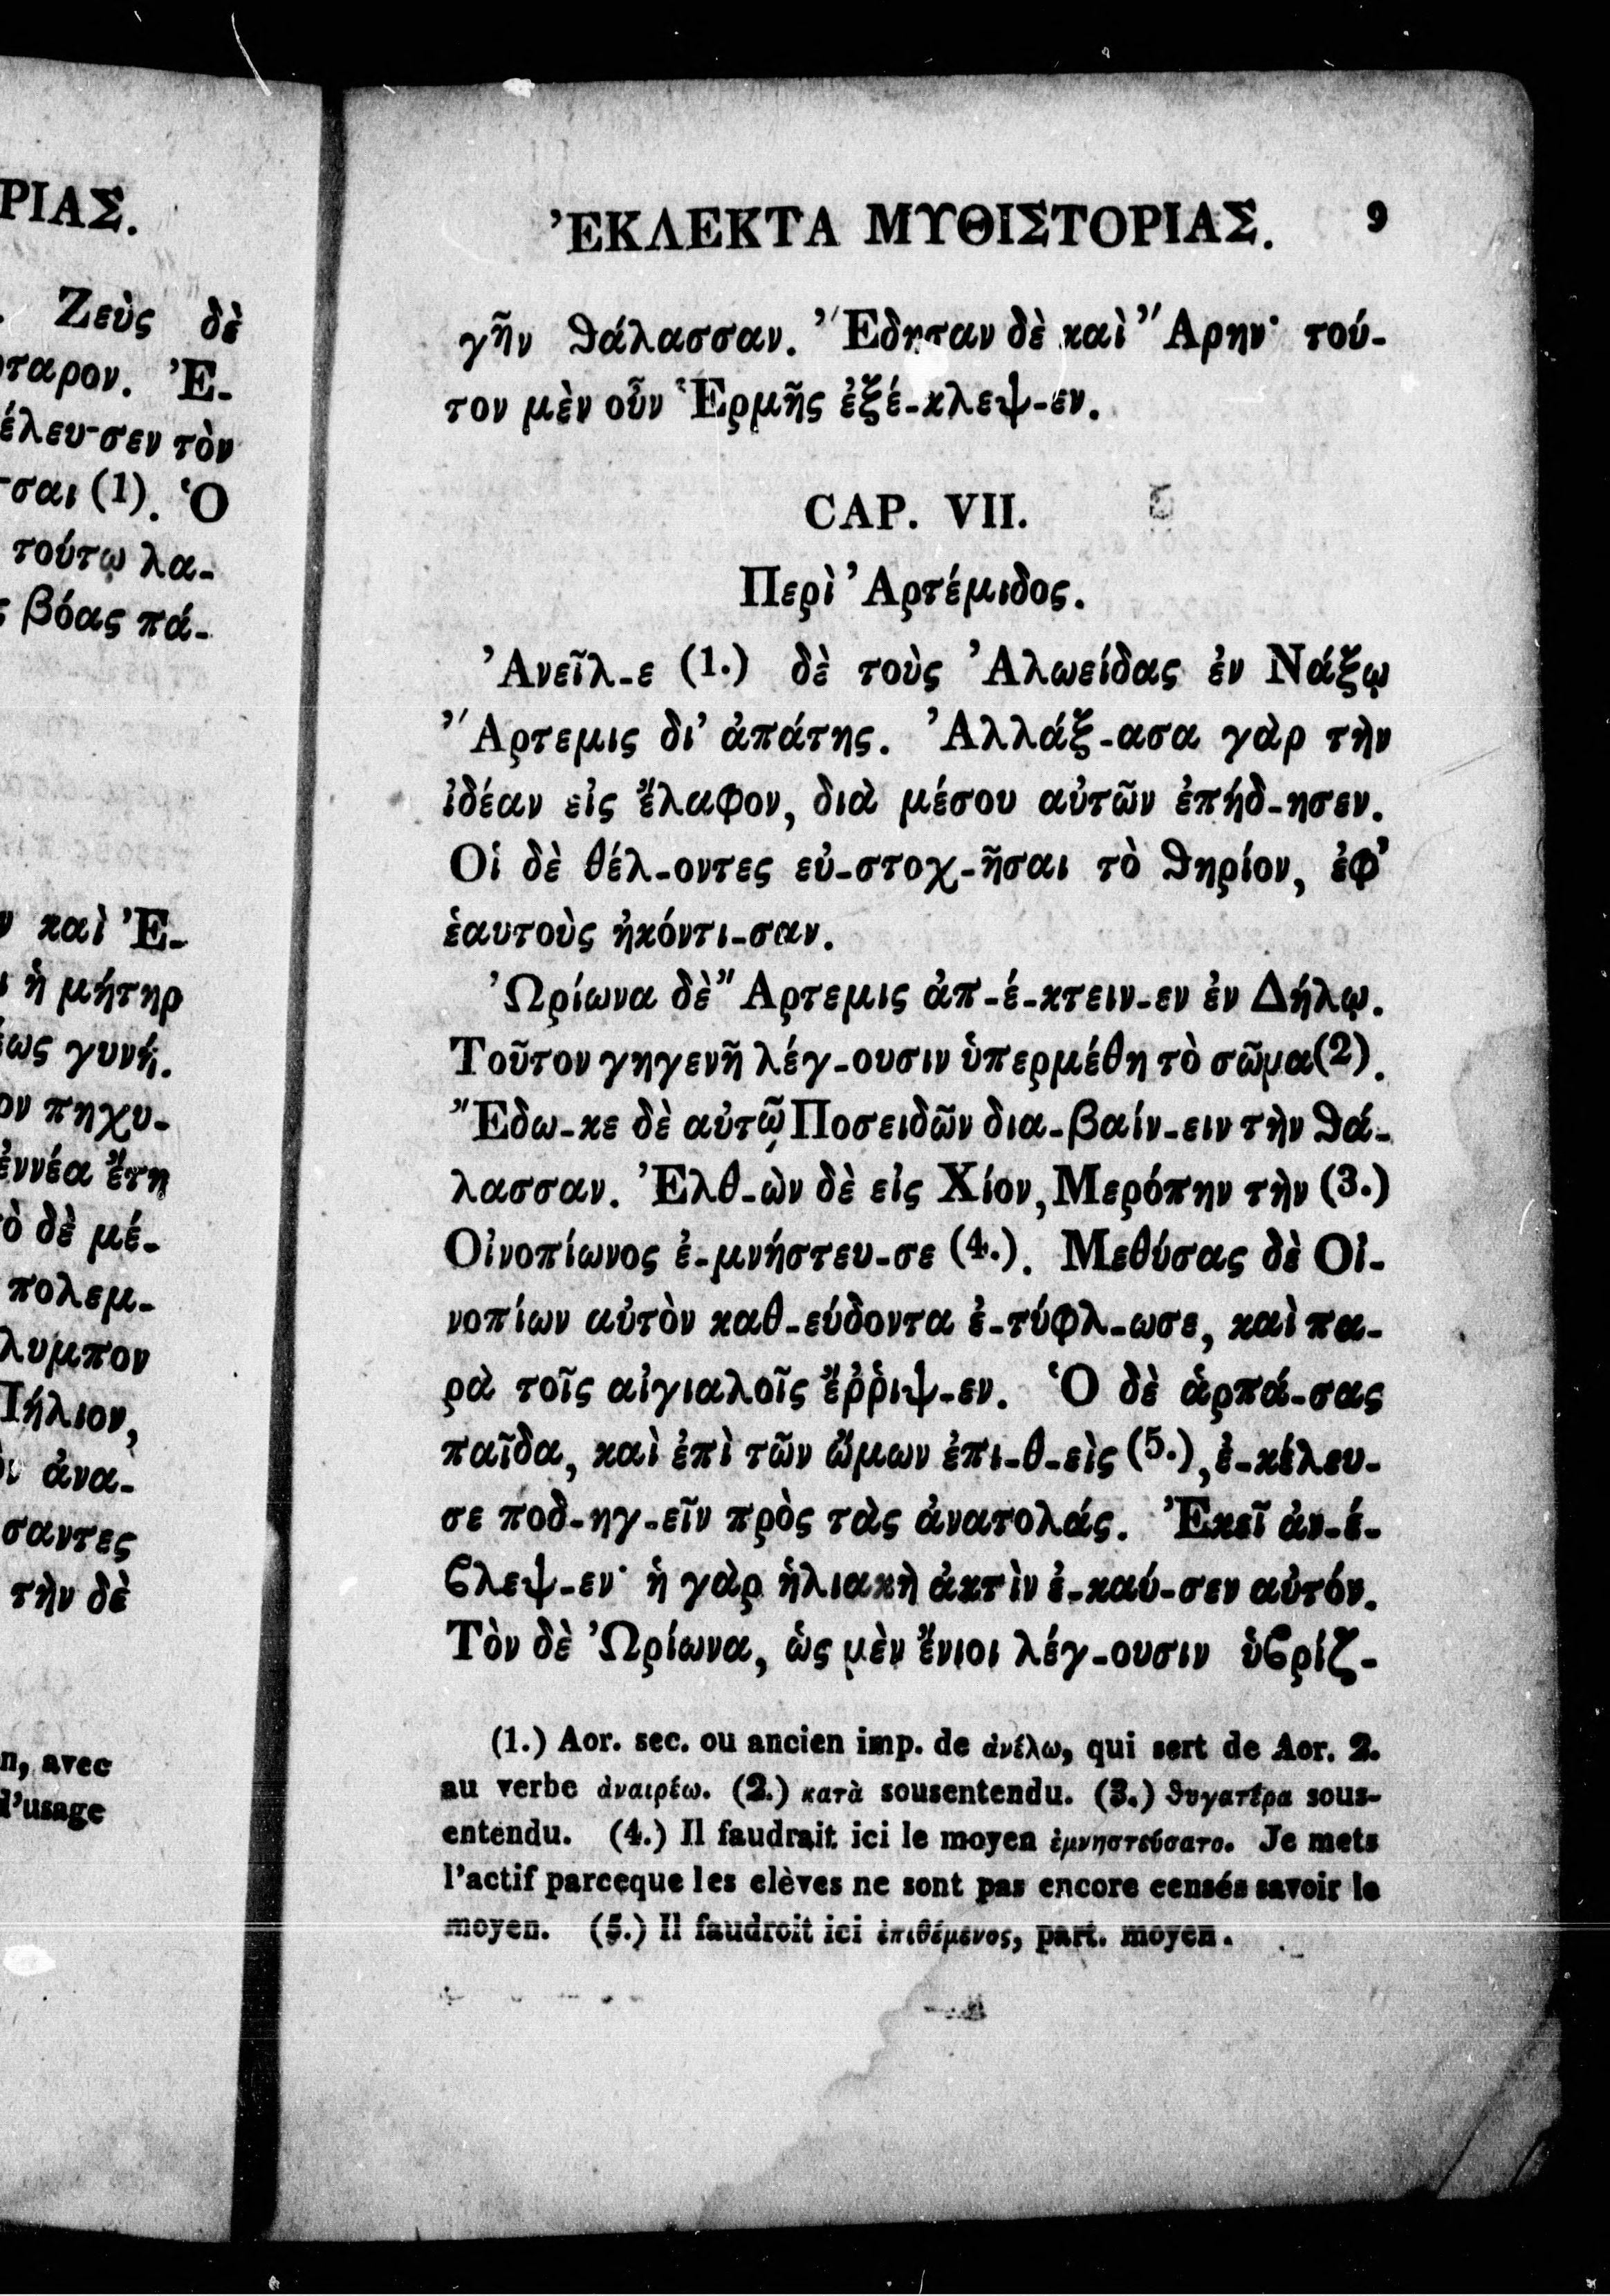 ΡΙΑΣ.
Ζεὺς δὲ
ταρον. Ἐ-
έλευ-σεν τὸν
-σαι (1). Ὁ
τούτῳ λα-
ς βόας πά-
καὶ Ἐ-
ἡ μήτηρ
ως γυνή.
ον πηχυ-
ἐννέα ἔτη
ὸ δὲ μέ-
πολεμ-
λυμπον
Πήλιον,
ἀνα-
σαντες
τὴν δὲ
n, avec
l'usage
ἘΚΛΕΚΤΑ ΜΥΘΙΣΤΟΡΙΑΣ. 9
γῆν θάλασσαν. Ἔδησαν δὲ καὶ Ἄρην· τού-
τον μὲν οὖν Ἑρμῆς ἐξέ-κλεψ-εν.
CAP. VII.
Περὶ Ἀρτέμιδος.
Ἀνεῖλ-ε (1.) δὲ τοὺς Ἀλωείδας ἐν Νάξῳ
Ἄρτεμις δι' ἀπάτης. Ἀλλάξ-ασα γὰρ τὴν
ἰδέαν εἰς ἔλαφον, διὰ μέσου αὐτῶν ἐπήδ-ησεν.
Οἱ δὲ θέλ-οντες εὐ-στοχ-ῆσαι τὸ θηρίον, ἐφ'
ἑαυτοὺς ἠκόντι-σαν.
Ὠρίωνα δὲ Ἄρτεμις ἀπ-έ-κτειν-εν ἐν Δήλῳ.
Τοῦτον γηγενῆ λέγ-ουσιν ὑπερμέθη τὸ σῶμα (2).
Ἔδω-κε δὲ αὐτῷ Ποσειδῶν δια-βαίν-ειν τὴν θά-
λασσαν. Ἐλθ-ὼν δὲ εἰς Χίον, Μερόπην τὴν (3.)
Οἰνοπίωνος ἐ-μνήστευ-σε (4.). Μεθύσας δὲ Οἰ-
νοπίων αὐτὸν καθ-εύδοντα ἐ-τύφλ-ωσε, καὶ πα-
ρὰ τοῖς αἰγιαλοῖς ἔῤῥιψ-εν. Ὁ δὲ ἁρπά-σας
παῖδα, καὶ ἐπὶ τῶν ὤμων ἐπι-θ-εὶς (5.), ἐ-κέλευ-
σε ποδ-ηγ-εῖν πρὸς τὰς ἀνατολάς. Ἐκεῖ ἀν-έ-
ϐλεψ-εν· ἡ γὰρ ἡλιακὴ ἀκτὶν ἐ-καύ-σεν αὐτόν.
Τὸν δὲ Ὠρίωνα, ὡς μὲν ἔνιοι λέγ-ουσιν ὑϐρίζ-
(1.) Aor. sec. ou ancien imp. de ἀνέλω, qui sert de Aor. 2.
au verbe ἀναιρέω. (2.) κατὰ sousentendu. (3.) θυγατέρα sous-
entendu. (4.) Il faudrait ici le moyen ἐμνηστεύσατο. Je mets
l'actif parceque les elèves ne sont pas encore censés savoir le
moyen. (5.) Il faudroit ici ἐπιθέμενος, part. moyen.